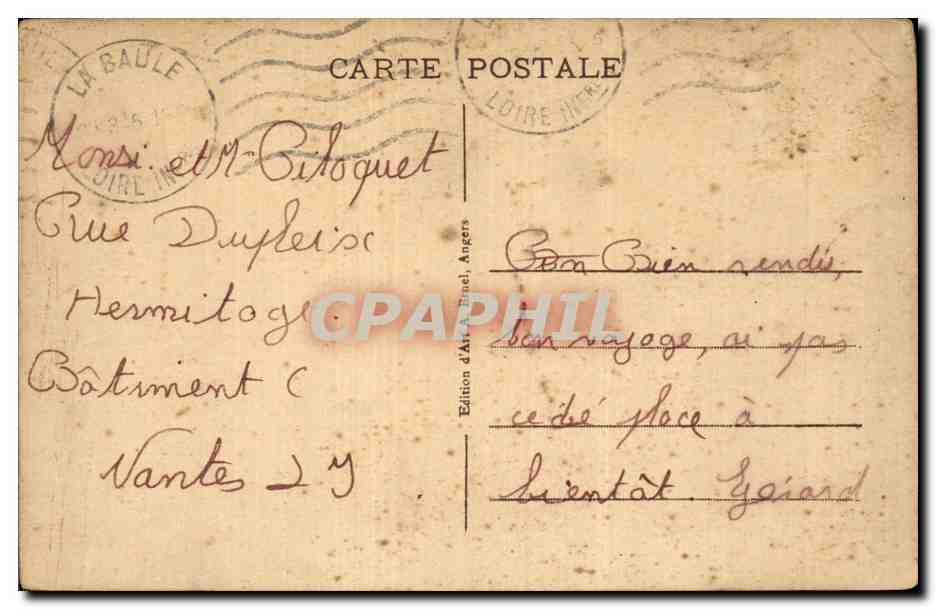 CARTE POSTALE
LA BAULE
LOIRE INFRE
LOIRE INF
Monsi. et Mme Pitoquet
Rue Dupleix
Hermitage.
Bâtiment C
Nantes
Edition d'Art A. Bruel, Angers
CPAPHIL
Bon Bien rendu,
bon voyage, ai pas
cédé place à
bientôt. Gérard